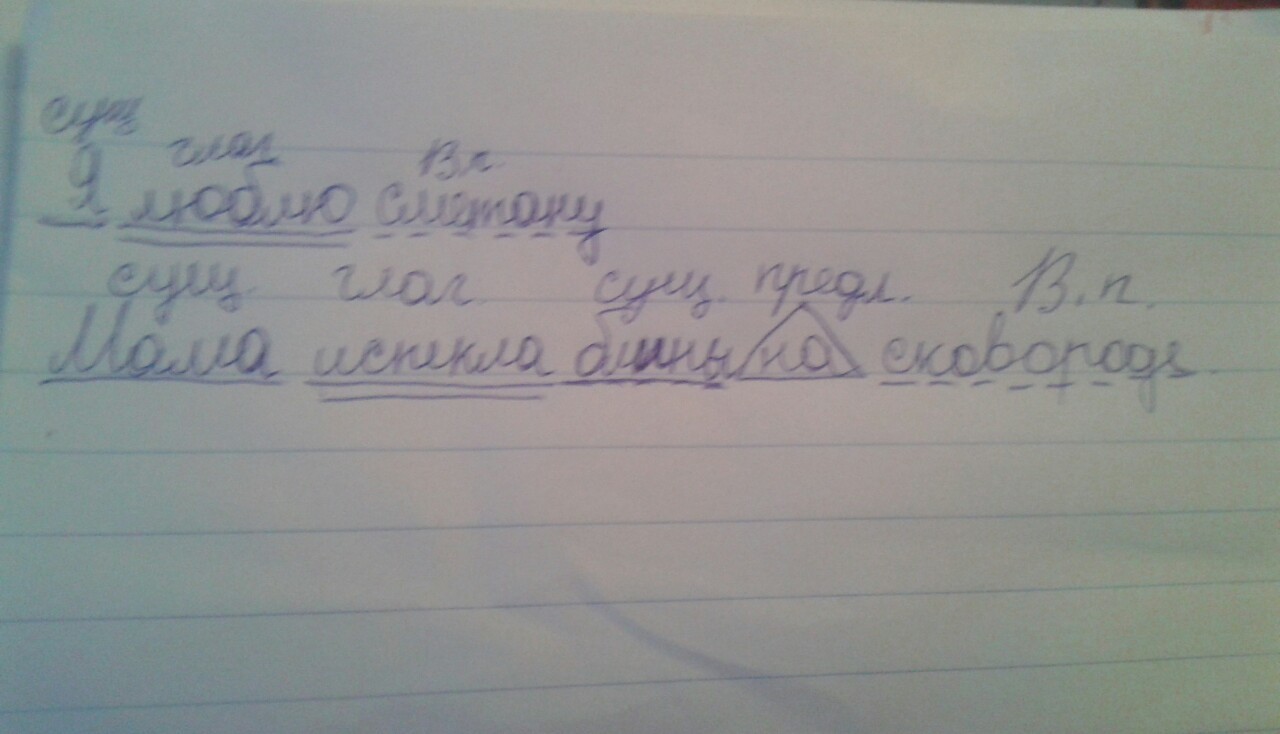 сущ
глаг В п
Я люблю сметану
сущ. глаг сущ. предл. В. п.
Мама испекла блины на сковороде.